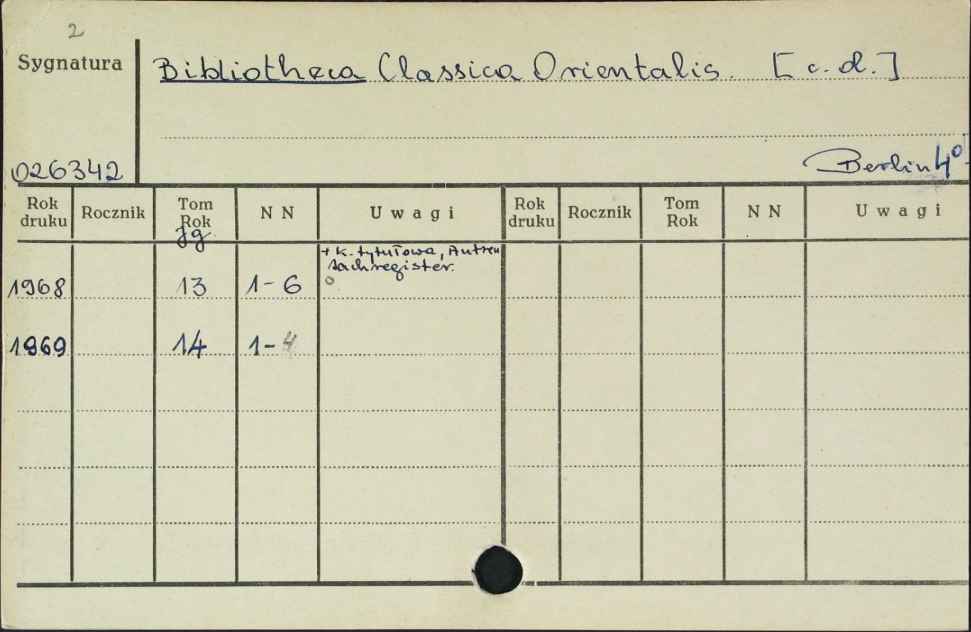 2
Sygnatura
Bibliotheca Classica Orientalis. [c.d.]
026342
Berlin 4°
Rok druku Rocznik Tom Rok NN Uwagi Rok druku Rocznik Tom Rok NN Uwagi
Jg
+ k. tytułowa,
Sachregister.
1968 13 1-6
1969 14 1-4